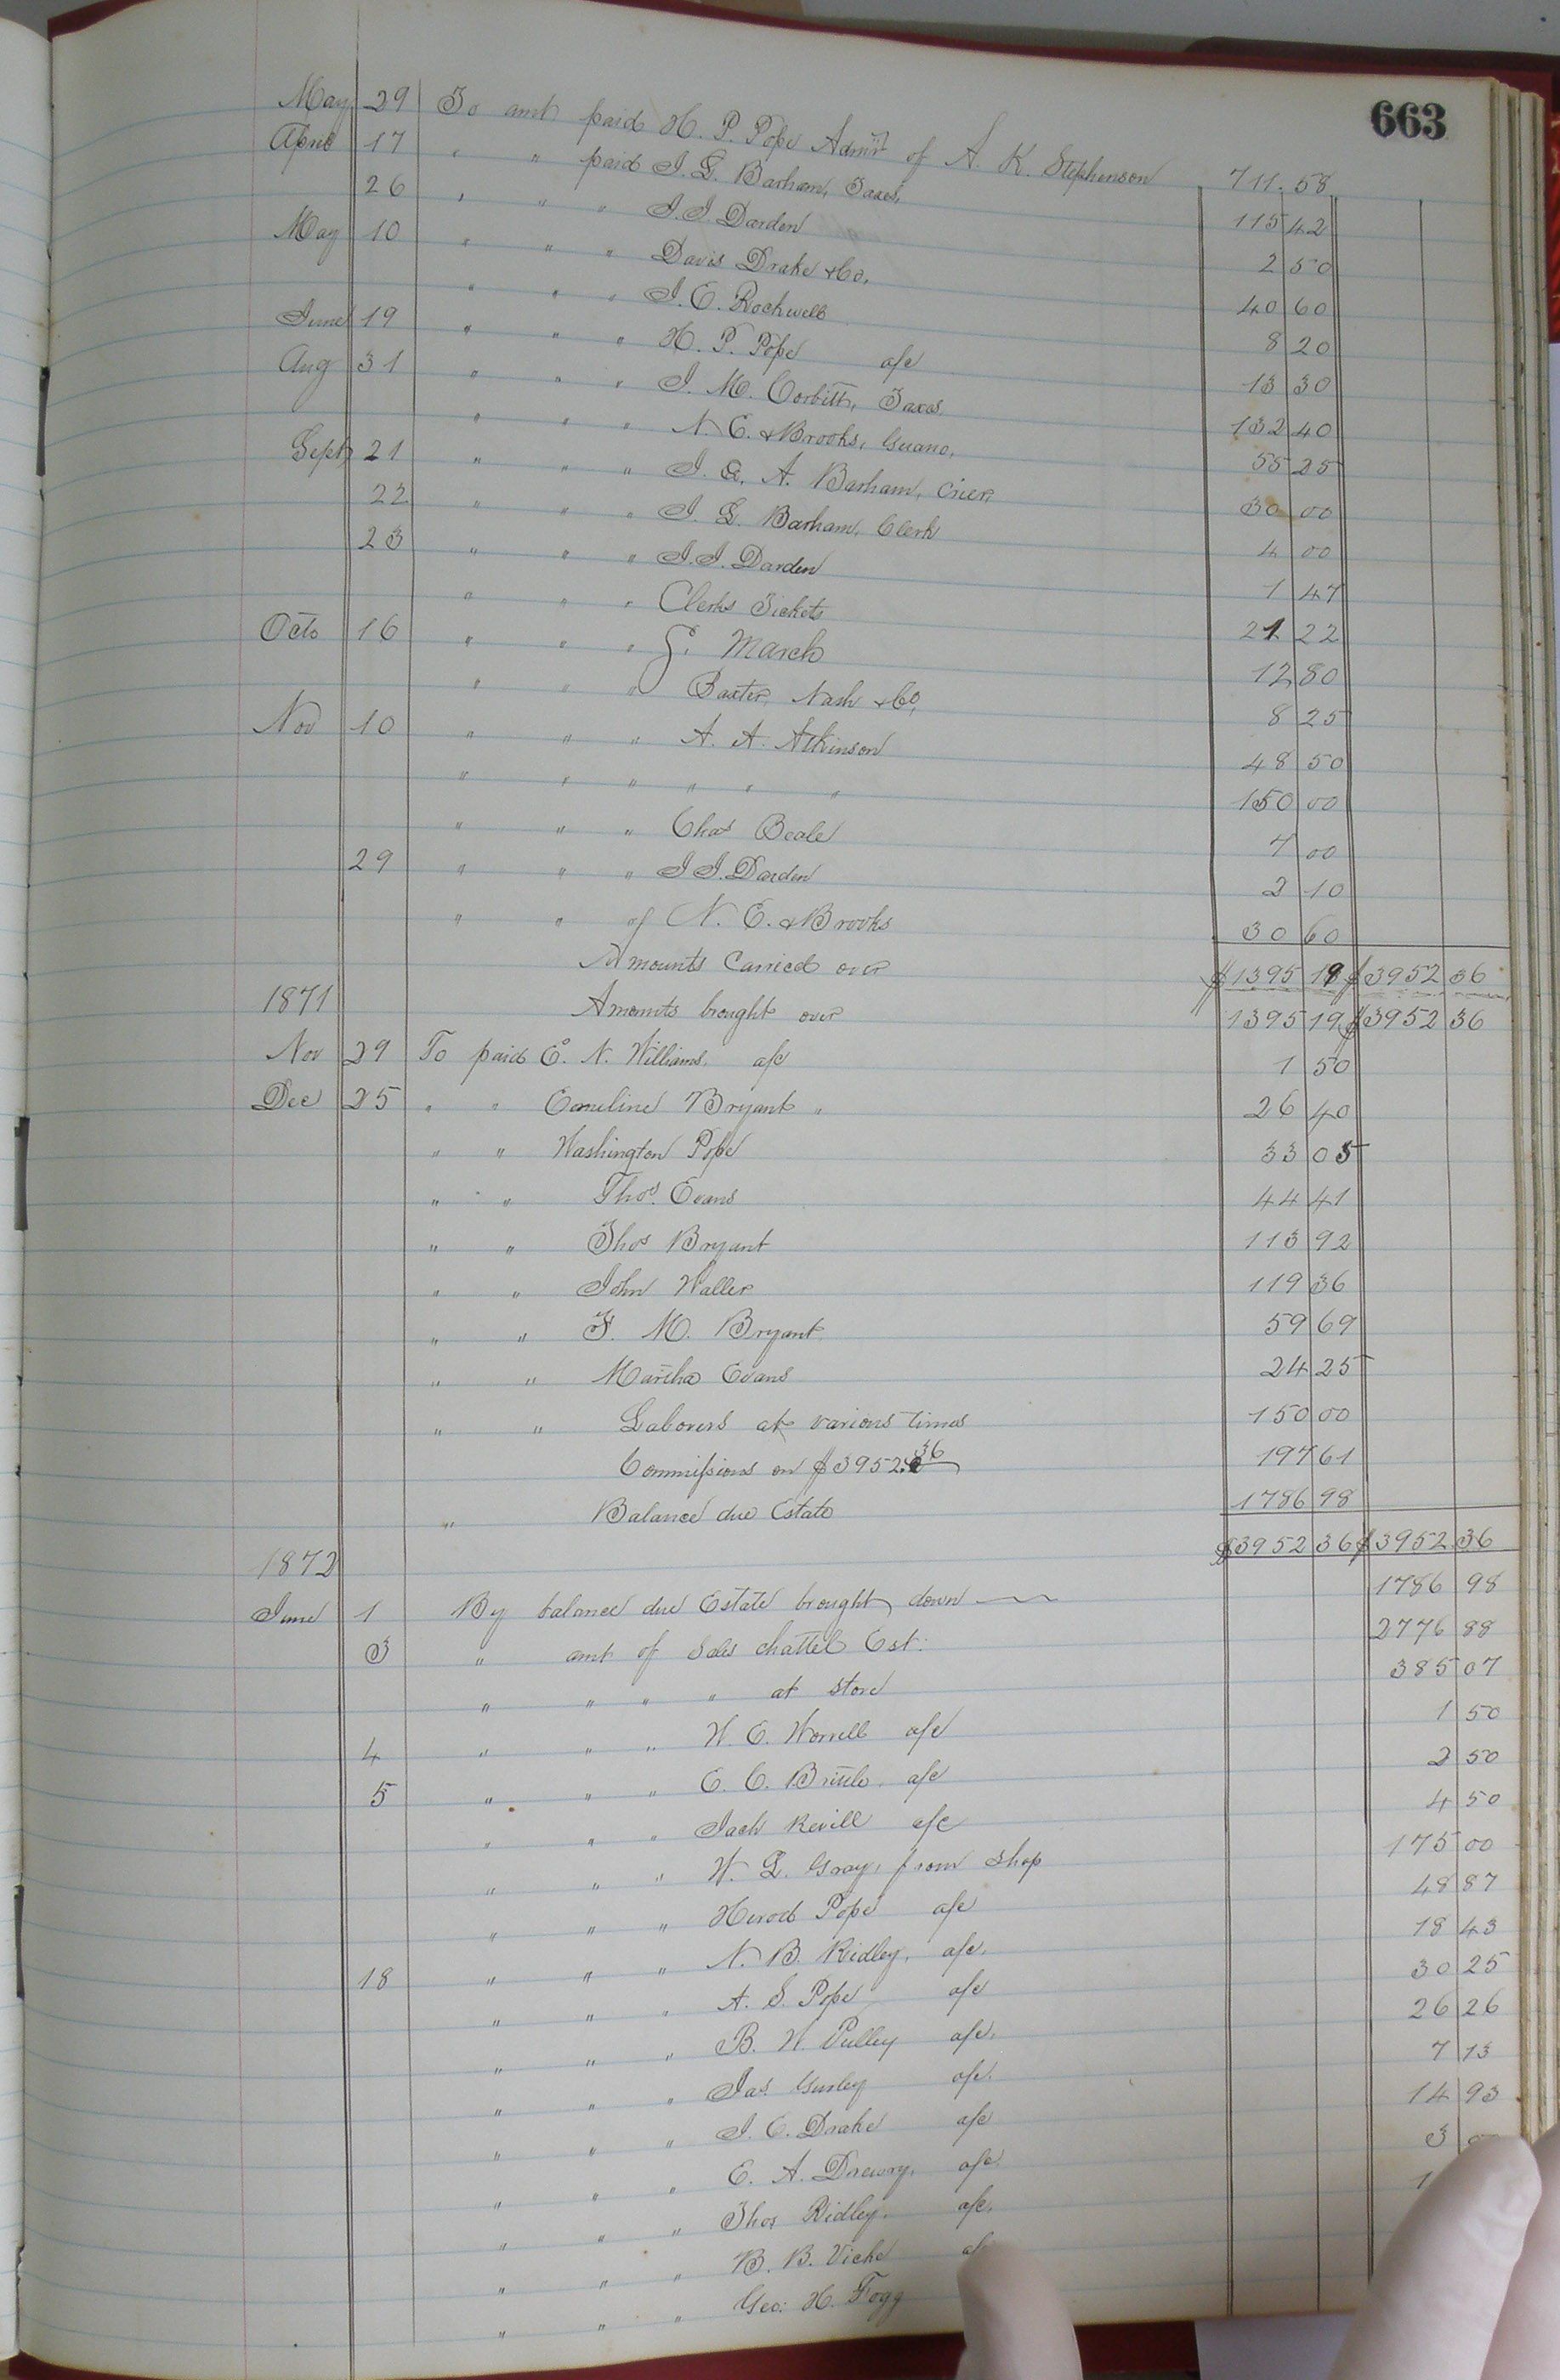 663
May 29 To amt paid H. P. Pope Admr of A. K. Stephenson 711.58
April 17 " " paid J. L. Barham, Taxes, 115 42
26 " " " J. J. Darden 2 50
May 10 " " " Davis Drake & Co, 40 60
" " " J. E. Rochwell 8 20
June 19 " " " H. P. Pope a/c 13 30
Aug 31 " " " J. M. Corbitt, Taxes 132 40
" " " N. E. & Brooks, Guano, 55 25
Sept 21 " " " J. G. A. Barham, Crier 30 00
22 " " " J. L. Barham, Clerk 4 00
23 " " " J. J. Darden 1 47
" " " Clerks Tickets 21 22
Octo 16 " " " J. March 12 80
" " " Baxter, Nash & Co, 8 25
Nov 10 " " " A. A. Atkinson 48 50
" " " " " " 150 00
" " " Chas Beale 7 00
29 " " " J J. Darden 2 10
" " of N. E. & Brooks 30 60
Amounts Carried over $1395 19 $3952 36
1871 Amounts brought over 1395 19 $3952 36
Nov 29 To paid E. N. Williams a/c 1 50
Dec 25 " " Emeline Bryant " 26 40
" " Washington Pope 33 05
" " Thos. Evans 44 41
" " Thos Bryant 113 92
" " John Waller 119 36
" " F. M. Bryant 59 69
" " Martha Evans 24 25
" " Laborers at various times 150 00
Commissions on $3952.36 197 61
" Balance due Estate 1786 98
$3952 36 $3952 36
1872
June 1 By balance due Estate brought down 1786 98
3 " amt of Sales chattel Est: 2776 88
" " " " at store 385 07
4 " " " W. E. Worrell a/c 1 50
5 " " " E. C. Brittle, a/c 2 50
" " " Jack Revill a/c 4 50
" " " W. L. Gray, from shop 175 00
" " " Herod Pope a/c 48 87
18 " " " N. B. Ridley, a/c. 18 43
" " " A. S. Pope a/c 30 25
" " " B. W. Pulley a/c. 26 26
" " " Jas Gurley a/c. 7 13
" " " J. E. Drake a/c 14 93
" " " E. A. Drewry, a/c. 3
" " " Thos Ridley, a/c. 1
" " " B. B. Vick
" " " Geo: H. Fogg